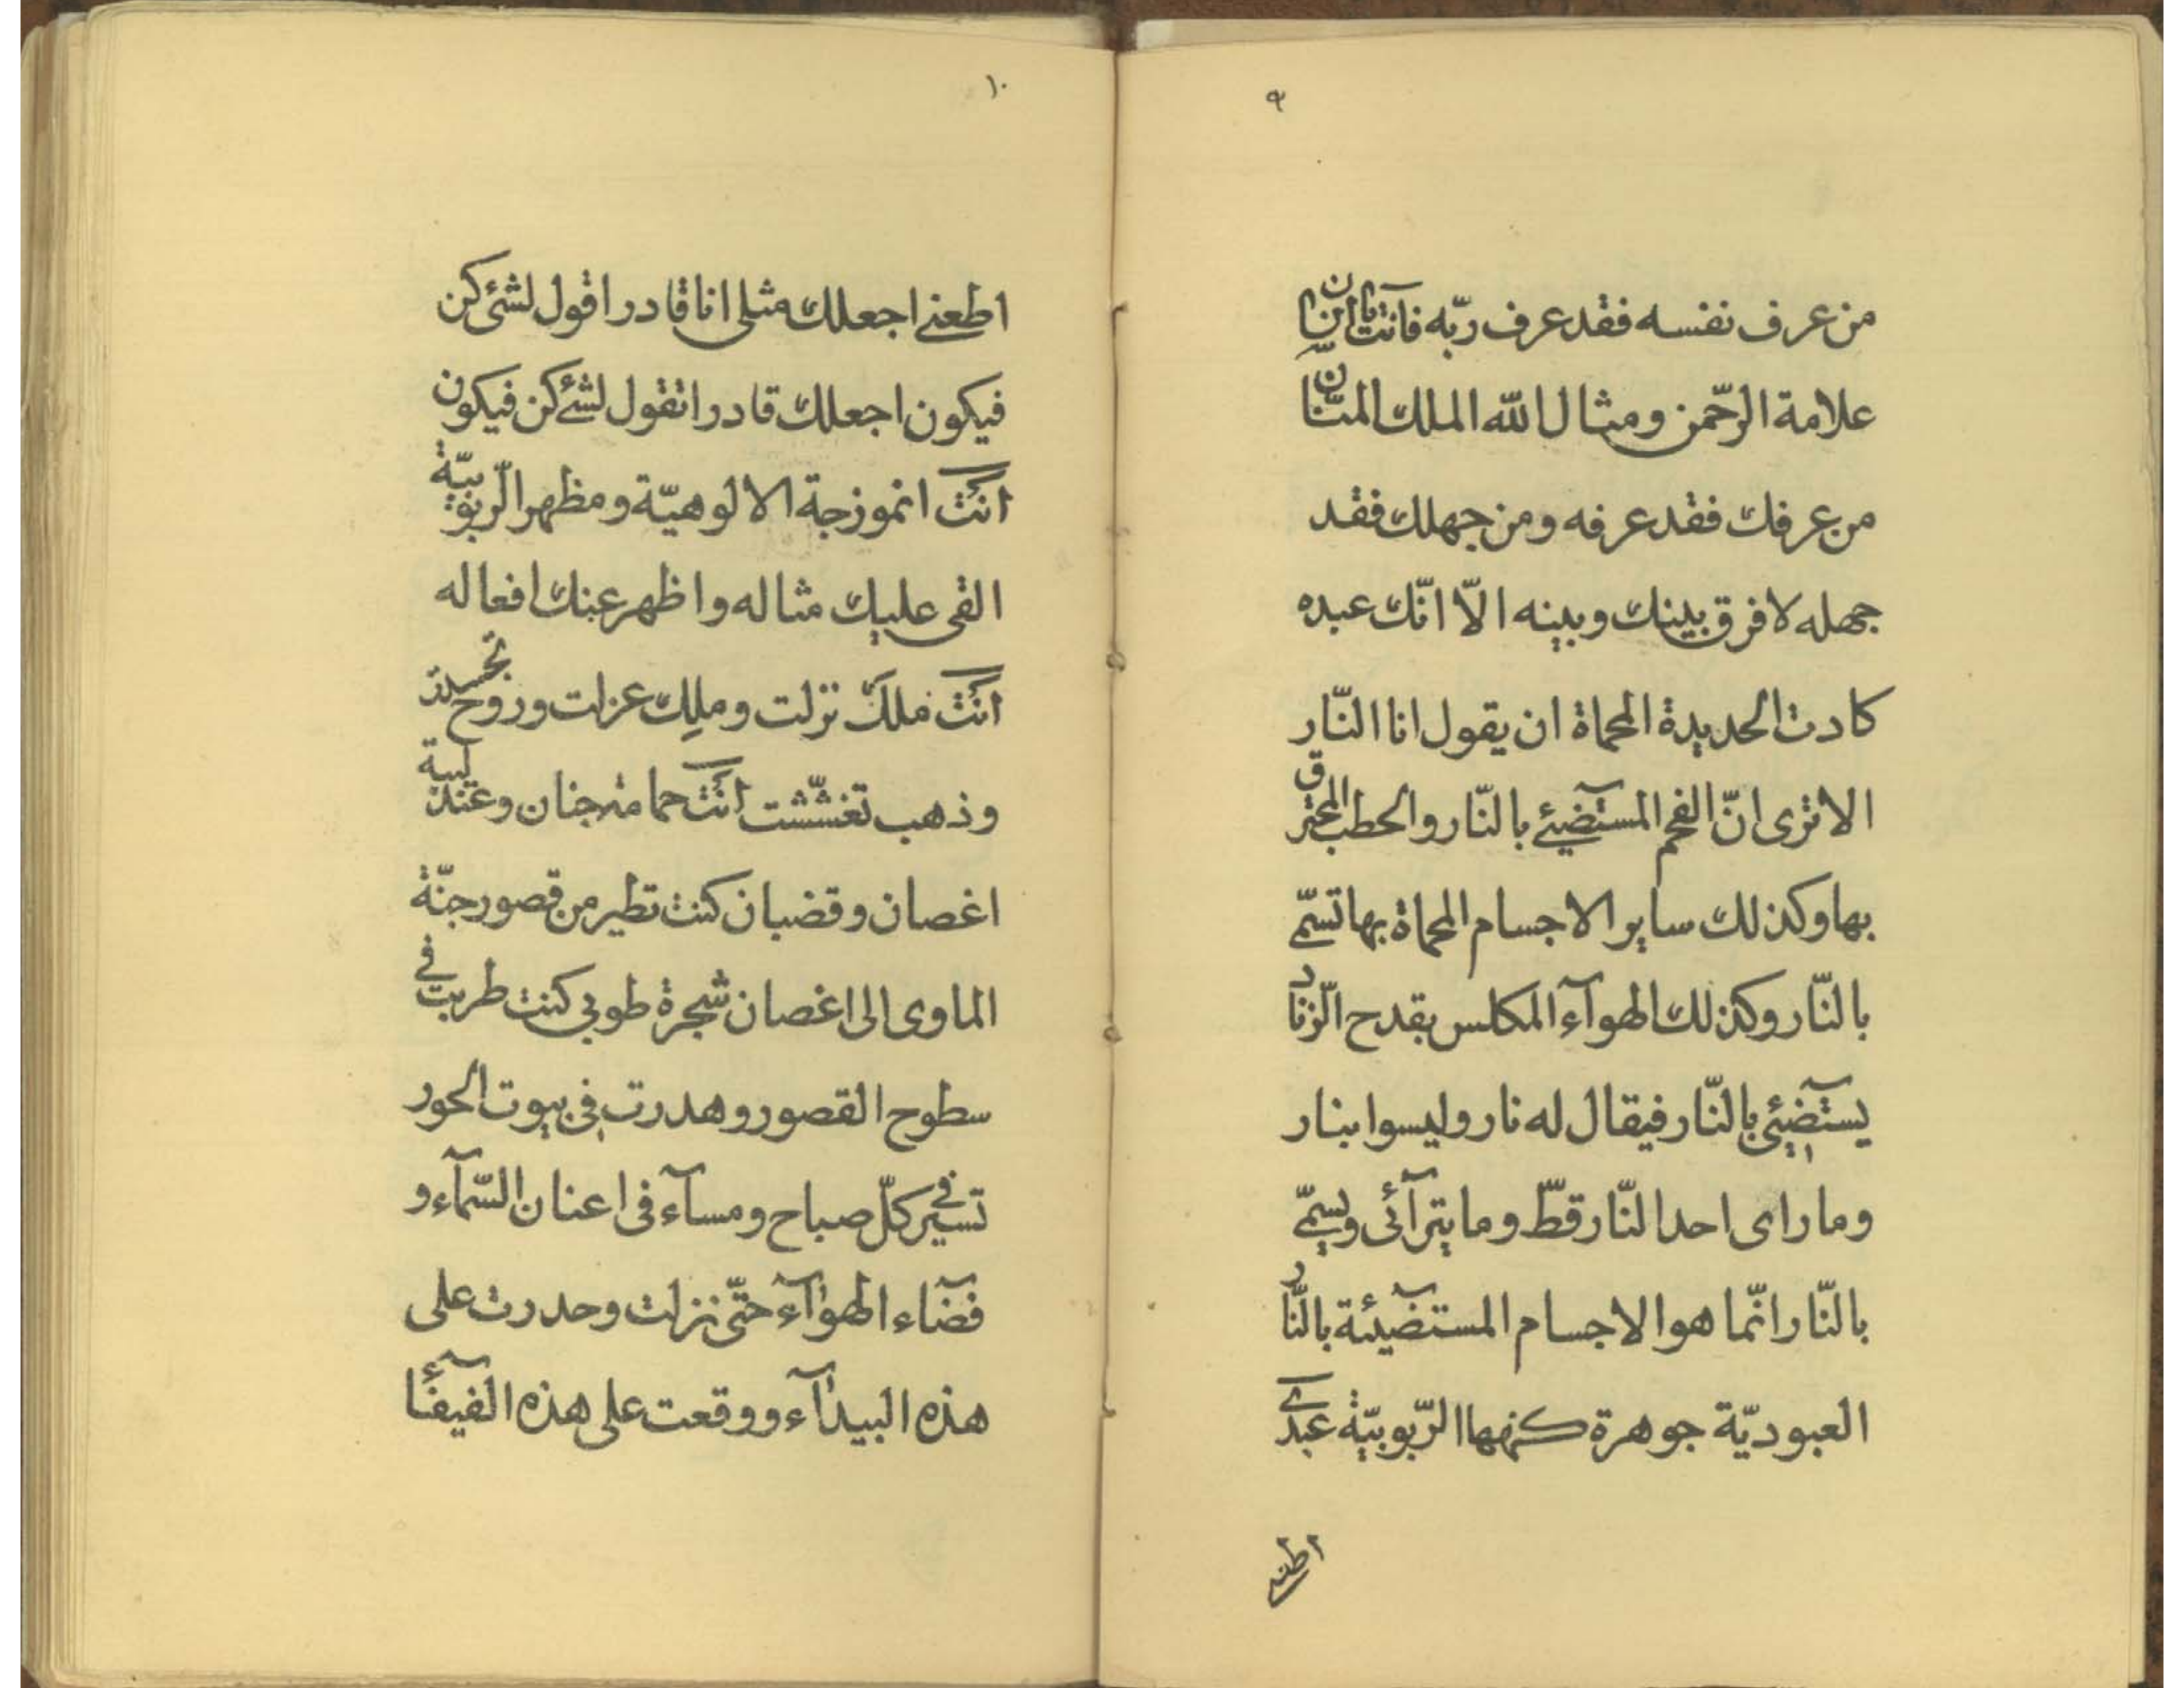 ٩
من عرف نفسه فقد عرف ربّه فانت يا انسان
علامة الرّحمن ومثال الله الملك المنّان
من عرفك فقد عرفه ومن جهلك فقد
جهله لا فرق بينك وبينه الّا انّك عبده
كادت الحديدة المحماة ان يقول انا النّار
الا ترى انّ الفحم المستضيئ بالنّار والحطب المحترق
بها وكذلك ساير الاجسام المحماة بها تسمّى
بالنّار وكذلك الهوآء المكلس بقدح الزّناد
يستضيئ بالنّار فيقال له نار وليسوا بنار
وما راى احد النّار قطّ وما يترآئى ويسمّى
بالنّار انّما هو الاجسام المستضيئة بالنّار
العبوديّة جوهرة كنهها الرّبوبيّة عبدى
اطعنى
١٠
اطعنى اجعلك مثلى انا قادر اقول لشئ كن
فيكون اجعلك قادرا تقول لشئ كن فيكون
انت انموزجة الالوهيّة ومظهر الرّبوبيّة
القى عليك مثاله واظهر عنك افعاله
انت ملك نزلت وملك عزلت وروح تجسدت
وذهب تغشّشت انت حمامة جنان وعندليبة
اغصان وقضبان كنت تطير من قصور جنّة
الماوى الى اغصان شجرة طوبى كنت طربت فى
سطوح القصور وهدرت فى بيوت الحور
تسير فى كلّ صباح ومسآء فى اعنان السّمآء و
فضآء الهوآء حتّى نزلت وحدرت على
هذه البيدآء ووقعت على هذه الفيفآء